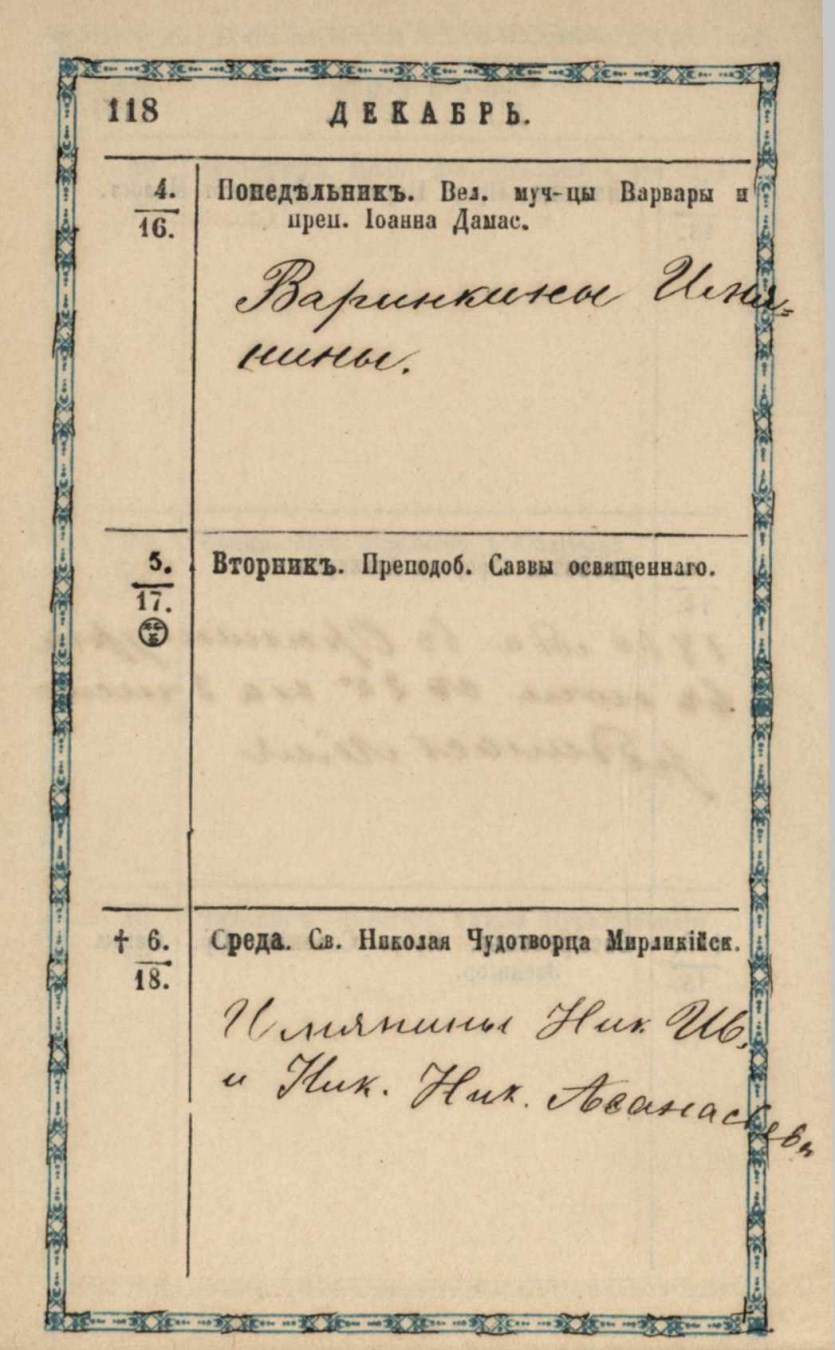 118 ДЕКАБРЬ.
4.
16.
Понедѣльникъ. Вел. муч-цы Варвары и
преп. Іоанна Дамас.
Варинкины Имя=
нины.
5.
17.
Вторникъ. Преподоб. Саввы освященнаго.
† 6.
18.
Среда. Св. Николая Чудотворца Мирликійск.
Имянины Ник Ив.
и Ник. Ник. Аѳанасьева